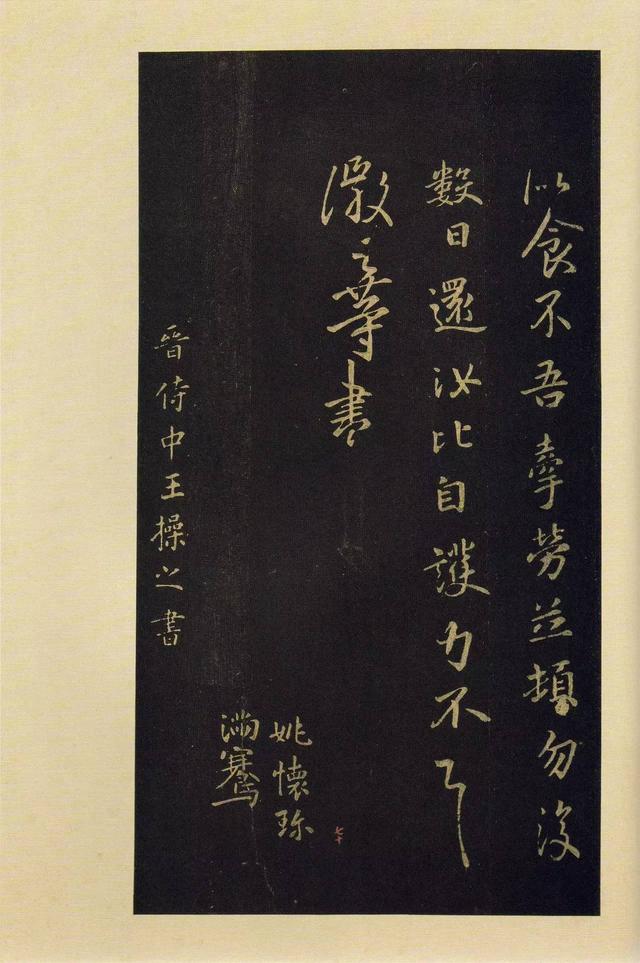 以食不吾牽勞並頓勿復
數日還汝比自護力不
徽之等書
姚懷珍
滿騫
七十
晉侍中王操之書